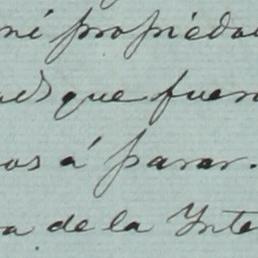 mi propieda
ues que fuer
os á parar.
a de la Inte